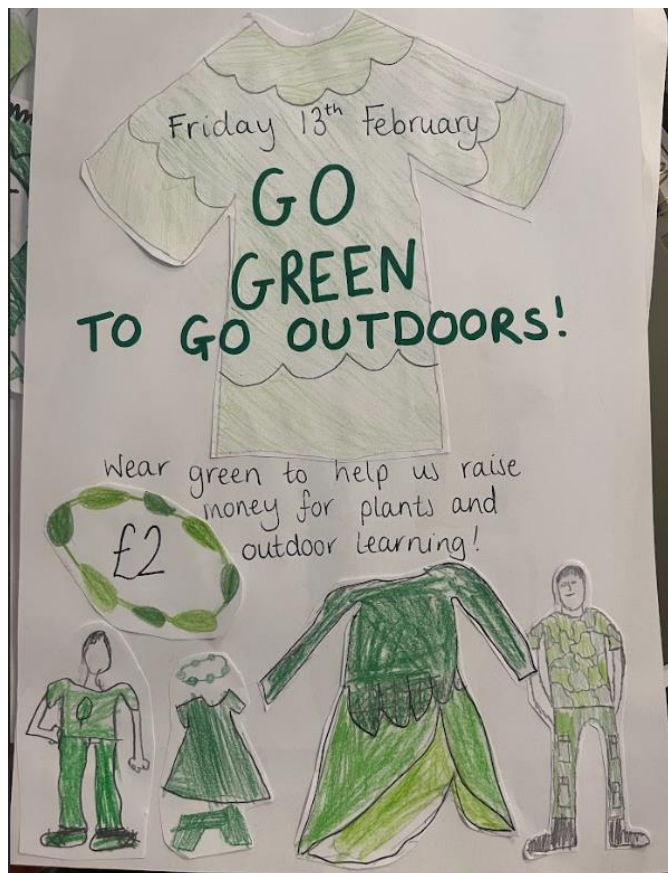 Friday 13th February
GO
GREEN
TO GO OUTDOORS!
Wear green to help us raise
money for plants and
outdoor learning!
£2